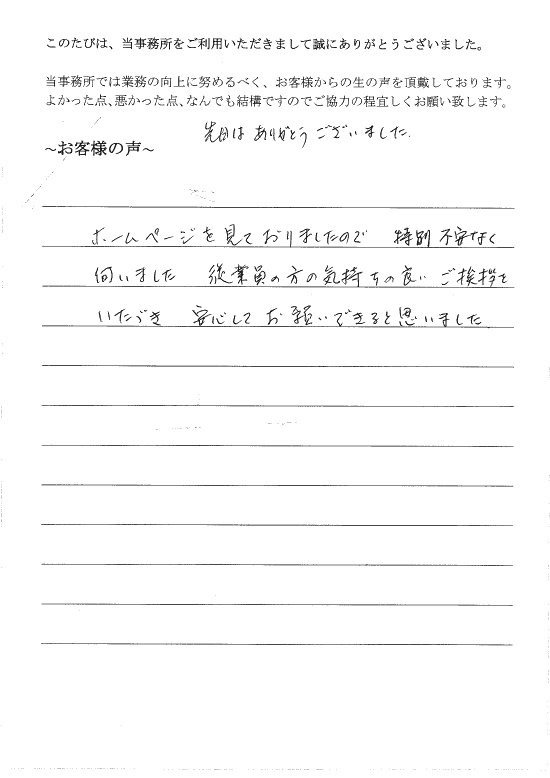 このたびは、当事務所をご利用いただきまして誠にありがとうございました。
当事務所では業務の向上に努めるべく、お客様からの生の声を頂戴しております。
よかった点、悪かった点、なんでも結構ですのでご協力の程宜しくお願い致します。
先日は ありがとう ございました.
～お客様の声～
ホームページを見ておりましたので 特別 不安なく
伺いました 従業員の方の気持ちの良い ご挨拶を
いただき 安心して お願いできると思いました